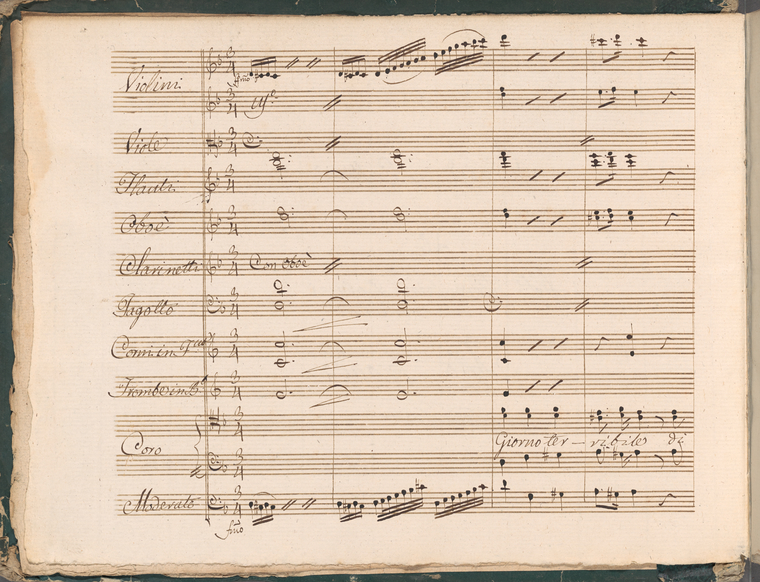 Violini
Viole
Flauti
Oboè
Clarinetti Con Oboè
Fagotto
Corni in F
Trombe in B
Coro
Giorno ter - ribile di
Moderato